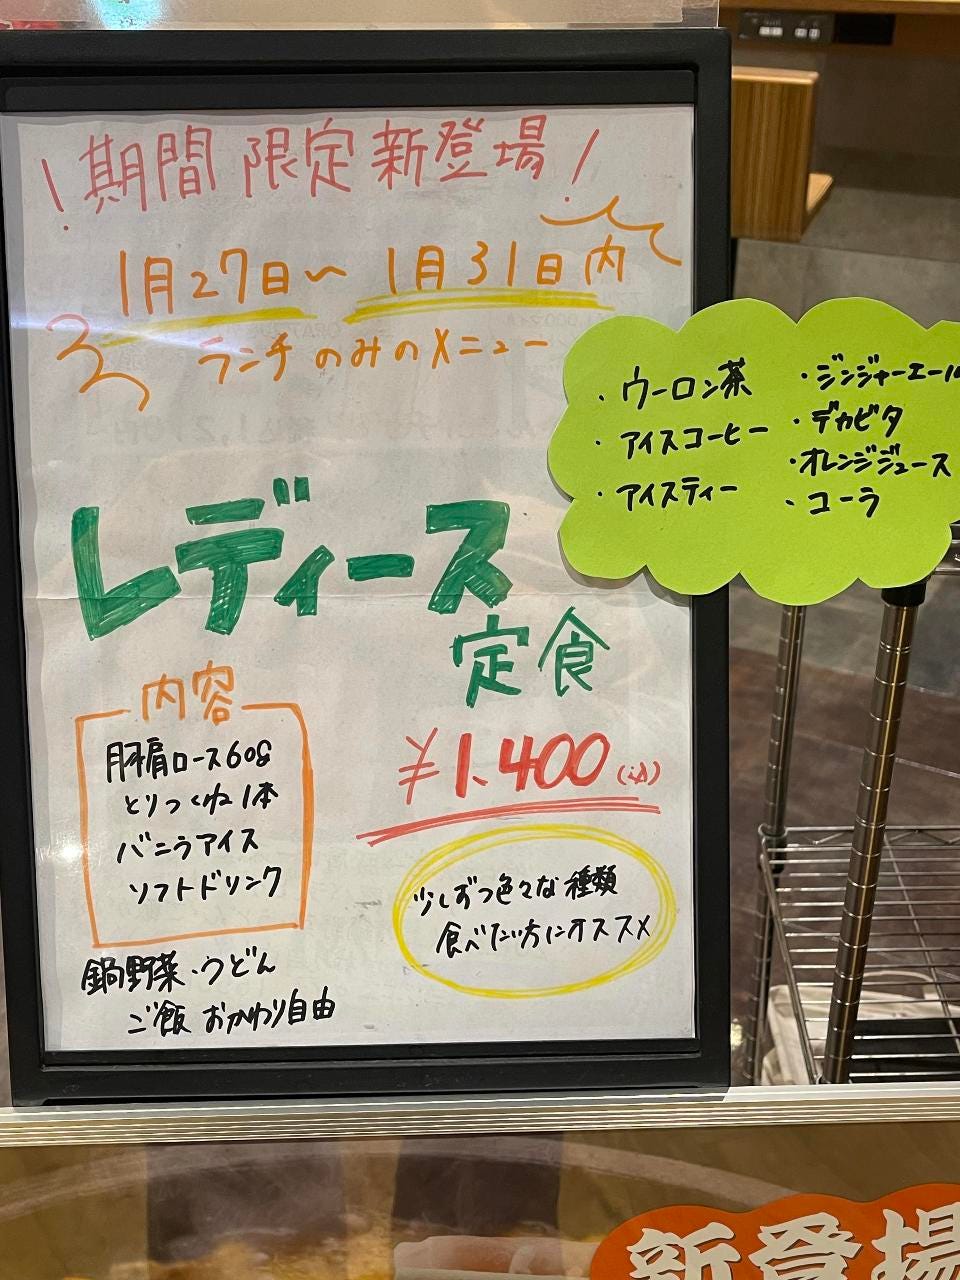 ！期間限定新登場！
1月27日～1月31日内
ランチのみのメニュー
レディース
定食
内容
豚肩ロース60g
とりつくね1本
バニラアイス
ソフトドリンク
鍋野菜・うどん
ご飯 おかわり自由
¥1.400(込)
少しずつ色々な種類
食べたい方にオススメ
・ウーロン茶
・アイスコーヒー
・アイスティー
・ジンジャーエール
・デカビタ
・オレンジジュース
・コーラ
新登場